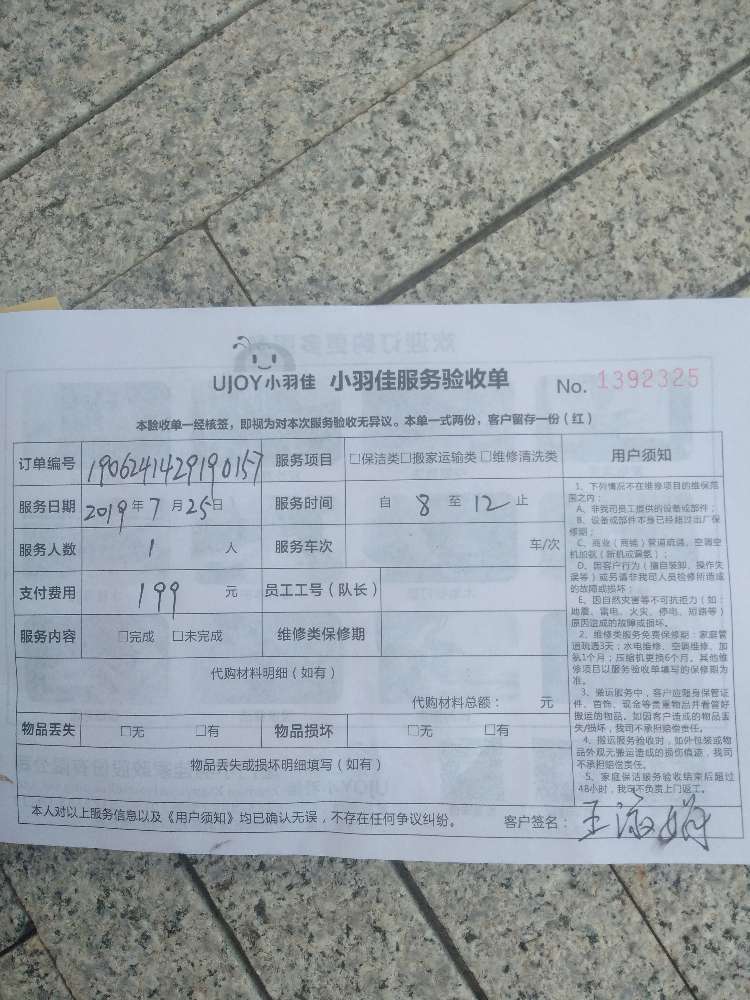 UJOY小羽佳 小羽佳服务验收单 No. 1392325
本验收单一经核签，即视为对本次服务验收无异议。本单一式两份，客户留存一份（红）
订单编号 1906241429190157 服务项目 □保洁类□搬家运输类 □维修清洗类
服务日期 2019年 7 月 25日 服务时间 自 8 至 12 止
服务人数 1 人 服务车次 车/次
支付费用 199 元 员工工号（队长）
服务内容 □完成 □未完成 维修类保修期
代购材料明细（如有）
代购材料总额： 元
物品丢失 □无 □有 物品损坏 □无 □有
物品丢失或损坏明细填写（如有）
用户须知
1、下列情况不在维修项目的维保范
围之内：
A、非我司员工提供的设备或部件；
B、设备或部件本身已经超过出厂保
修期；
C、商业（商铺）管道疏通、空调空
机加氨（新机或漏氨）；
D、因客户行为（擅自装卸、操作失
误等）或另请非我司人员检修所造成
的故障或损坏；
E、因自然灾害等不可抗拒力（如：
地震、雷电、火灾、停电、短路等）
原因造成的故障或损坏。
2、维修类服务免费保修期：家庭管
道疏通3天；水电维修、空调维修、加
氨1个月；压缩机更换6个月。其他维
修项目以服务验收单填写的保修期为
准。
3、搬运服务中，客户应随身保管证
件、首饰、现金等贵重物品并看管好
搬运的物品。如因客户造成的物品丢
失/损坏，我司不承担赔偿责任。
4、搬运服务验收时，如外包装或物
品外观无搬运造成的损伤痕迹，我司
不承担赔偿责任。
5、家庭保洁服务验收结束后超过
48小时，我司不负责上门返工。
本人对以上服务信息以及《用户须知》均已确认无误，不存在任何争议纠纷。 客户签名： 王淑娟